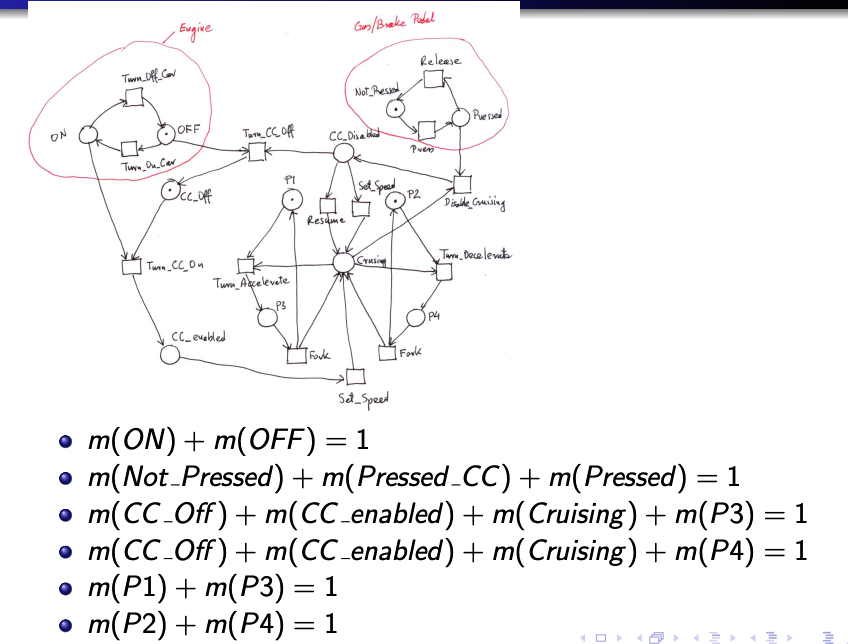 Engine
Gas/Brake Pedal
Turn_Off_Car
Release
Not_Pressed
ON
OFF
Turn_CC_Off
CC_Disabled
Pressed
Press
Turn_On_Car
P1
Set_Speed
P2
CC_Off
Resume
Disable_Cruising
Turn_CC_On
Crusing
Turn_Decelerate
Turn_Accelerate
P3
P4
CC_enabled
Fork
Fork
Set_Speed
m(ON) + m(OFF) = 1
m(Not_Pressed) + m(Pressed_CC) + m(Pressed) = 1
m(CC_Off) + m(CC_enabled) + m(Cruising) + m(P3) = 1
m(CC_Off) + m(CC_enabled) + m(Cruising) + m(P4) = 1
m(P1) + m(P3) = 1
m(P2) + m(P4) = 1